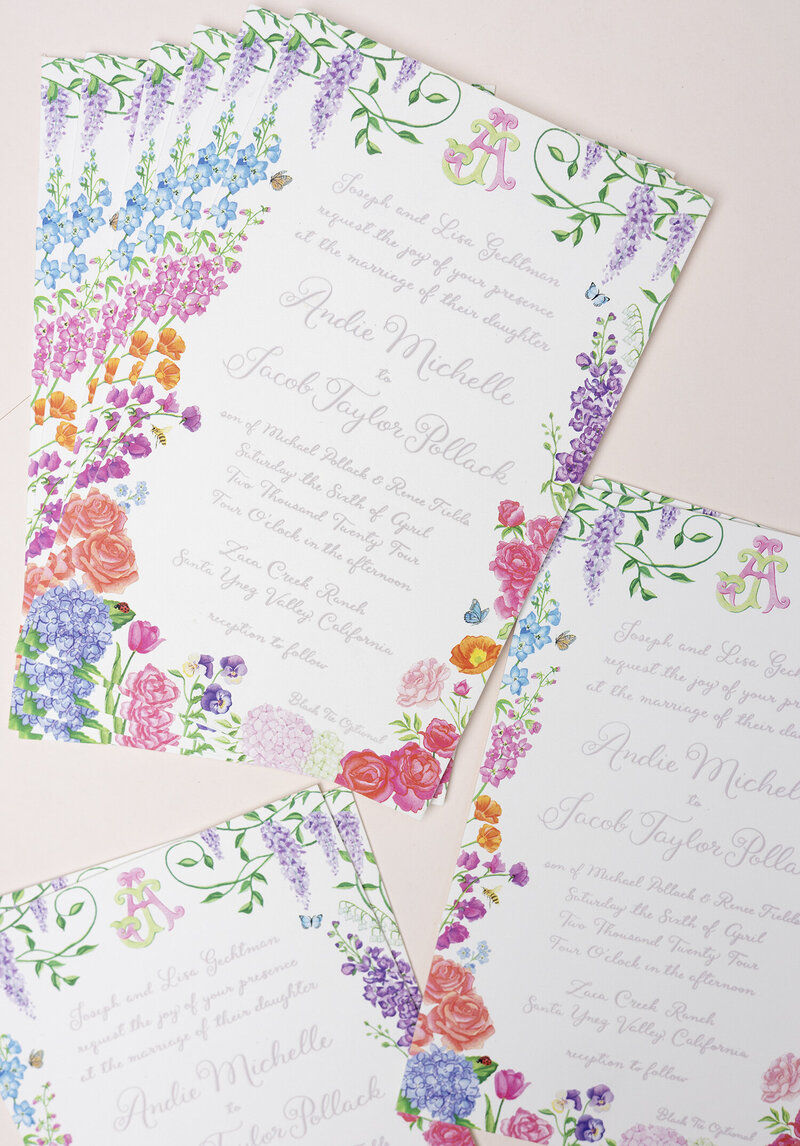 JA
Joseph and Lisa Gechtman
request the joy of your presence
at the marriage of their daughter
Andie Michelle
to
Jacob Taylor Pollack
son of Michael Pollack & Renee Fields
Saturday the Sixth of April
Two Thousand Twenty Four
Four O'clock in the afternoon
Zaca Creek Ranch
Santa Ynez Valley California
reception to follow
Black Tie Optional
JA
Joseph and Lisa Ge
request the joy of your pre
at the marriage of their dau
Andie Michel
to
Jacob Taylor Polla
son of Michael Pollack & Renee Fields
Saturday the Sixth of April
Two Thousand Twenty Four
Four O'clock in the afternoon
Zaca Creek Ranch
Santa Ynez Valley California
reception to follow
Black Tie Optional
JA
Joseph and Lisa Gechtman
request the joy of your presence
at the marriage of their daughter
Andie Michelle
to
Jacob Taylor Pollack